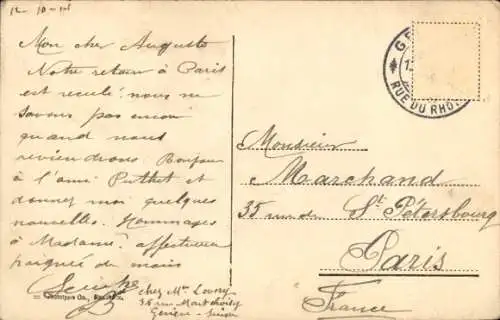 12-10-08
Mon cher Auguste
Notre retour à Paris
est reculé. nous ne
savons pas encore
quand nous
reviendrons Bonjour
à l'ami Puthet et
donnez moi quelques
nouvelles. Hommages
à Madame. affectueuse
poignée de main
chez Mme
36 rue Montchoisy
Genève-Suisse
GE
RUE DU RHÔ
Monsieur
Marchand
35 rue de St Pétersbourg
Paris
France